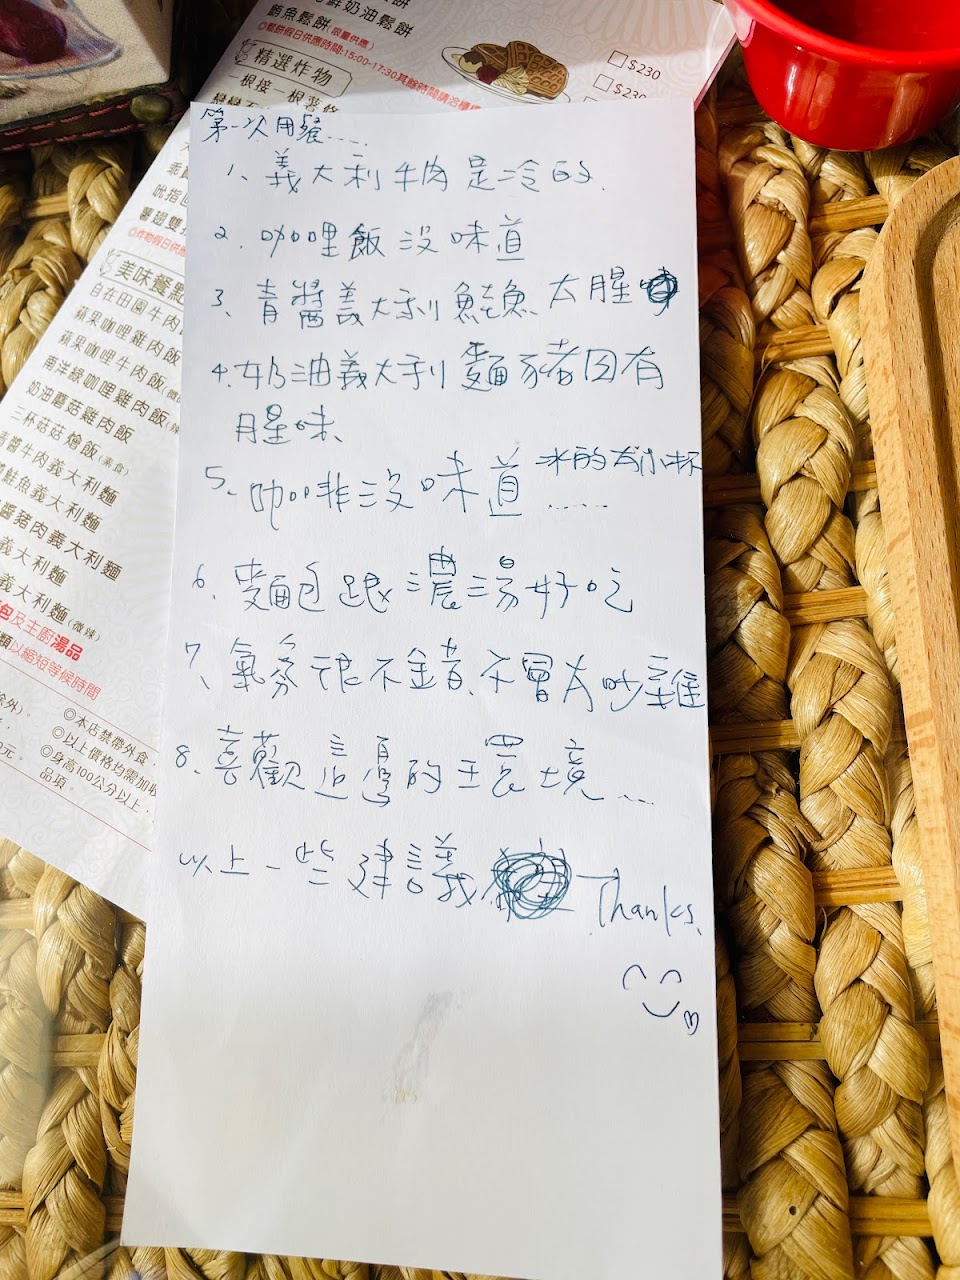 鮮奶油鬆餅
鮪魚鬆餅(限量供應)
◎鬆餅假日供應時間:15:00-17:30其餘時間請洽櫃
□$230
□$230
精選炸物
一根接一根薯條
美味餐點
自在田園牛肉
蘋果咖哩雞肉飯
蘋果咖哩牛肉飯(微
南洋綠咖哩雞肉飯(辣
奶油蘑菇雞肉飯
三杯菇菇燴飯(素食)
青醬牛肉義大利麵
鮭魚義大利麵
醬豬肉義大利麵
義大利麵
義大利麵(微辣)
包及主廚湯品
以縮短等候時間
◎本店禁帶外食
◎以上價格均需加收
◎身高100公分以上
品項。
第一次用餐.....
1、義大利牛肉是冷的.
2. 咖哩飯沒味道
3、青醬義大利鮭魚太腥
4.奶油義大利麵豬肉有
腥味、
5、咖啡沒味道 冰的太小杯
......
6、麵包跟濃湯好吃
7、氣氛很不錯、不會太吵雜
8、喜歡這邊的環境....
以上一些建議 Thanks.